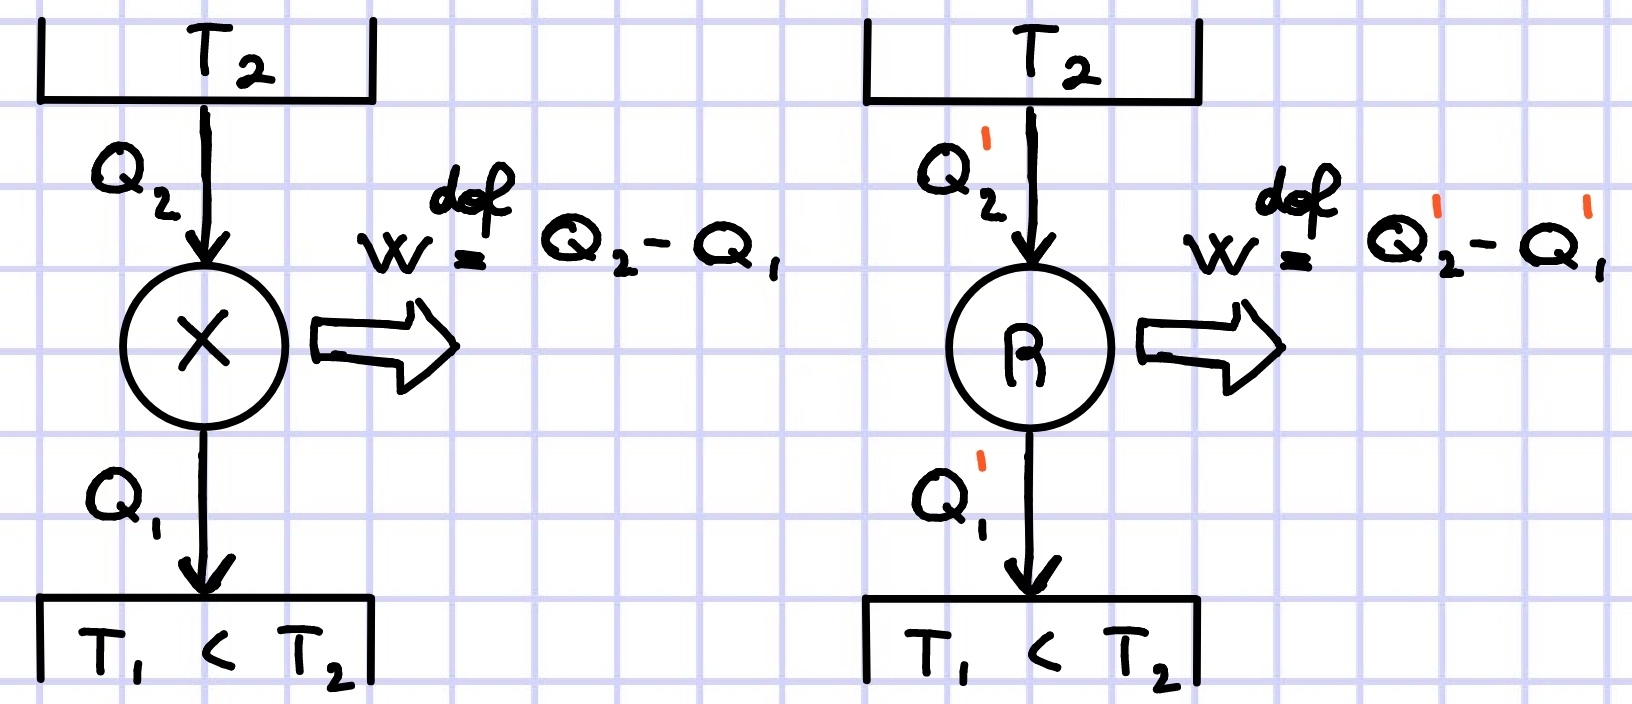 T₂
Q₂
W ≝ Q₂ - Q₁
X
Q₁
T₁ < T₂
T₂
Q₂'
W ≝ Q₂' - Q₁'
R
Q₁'
T₁ < T₂